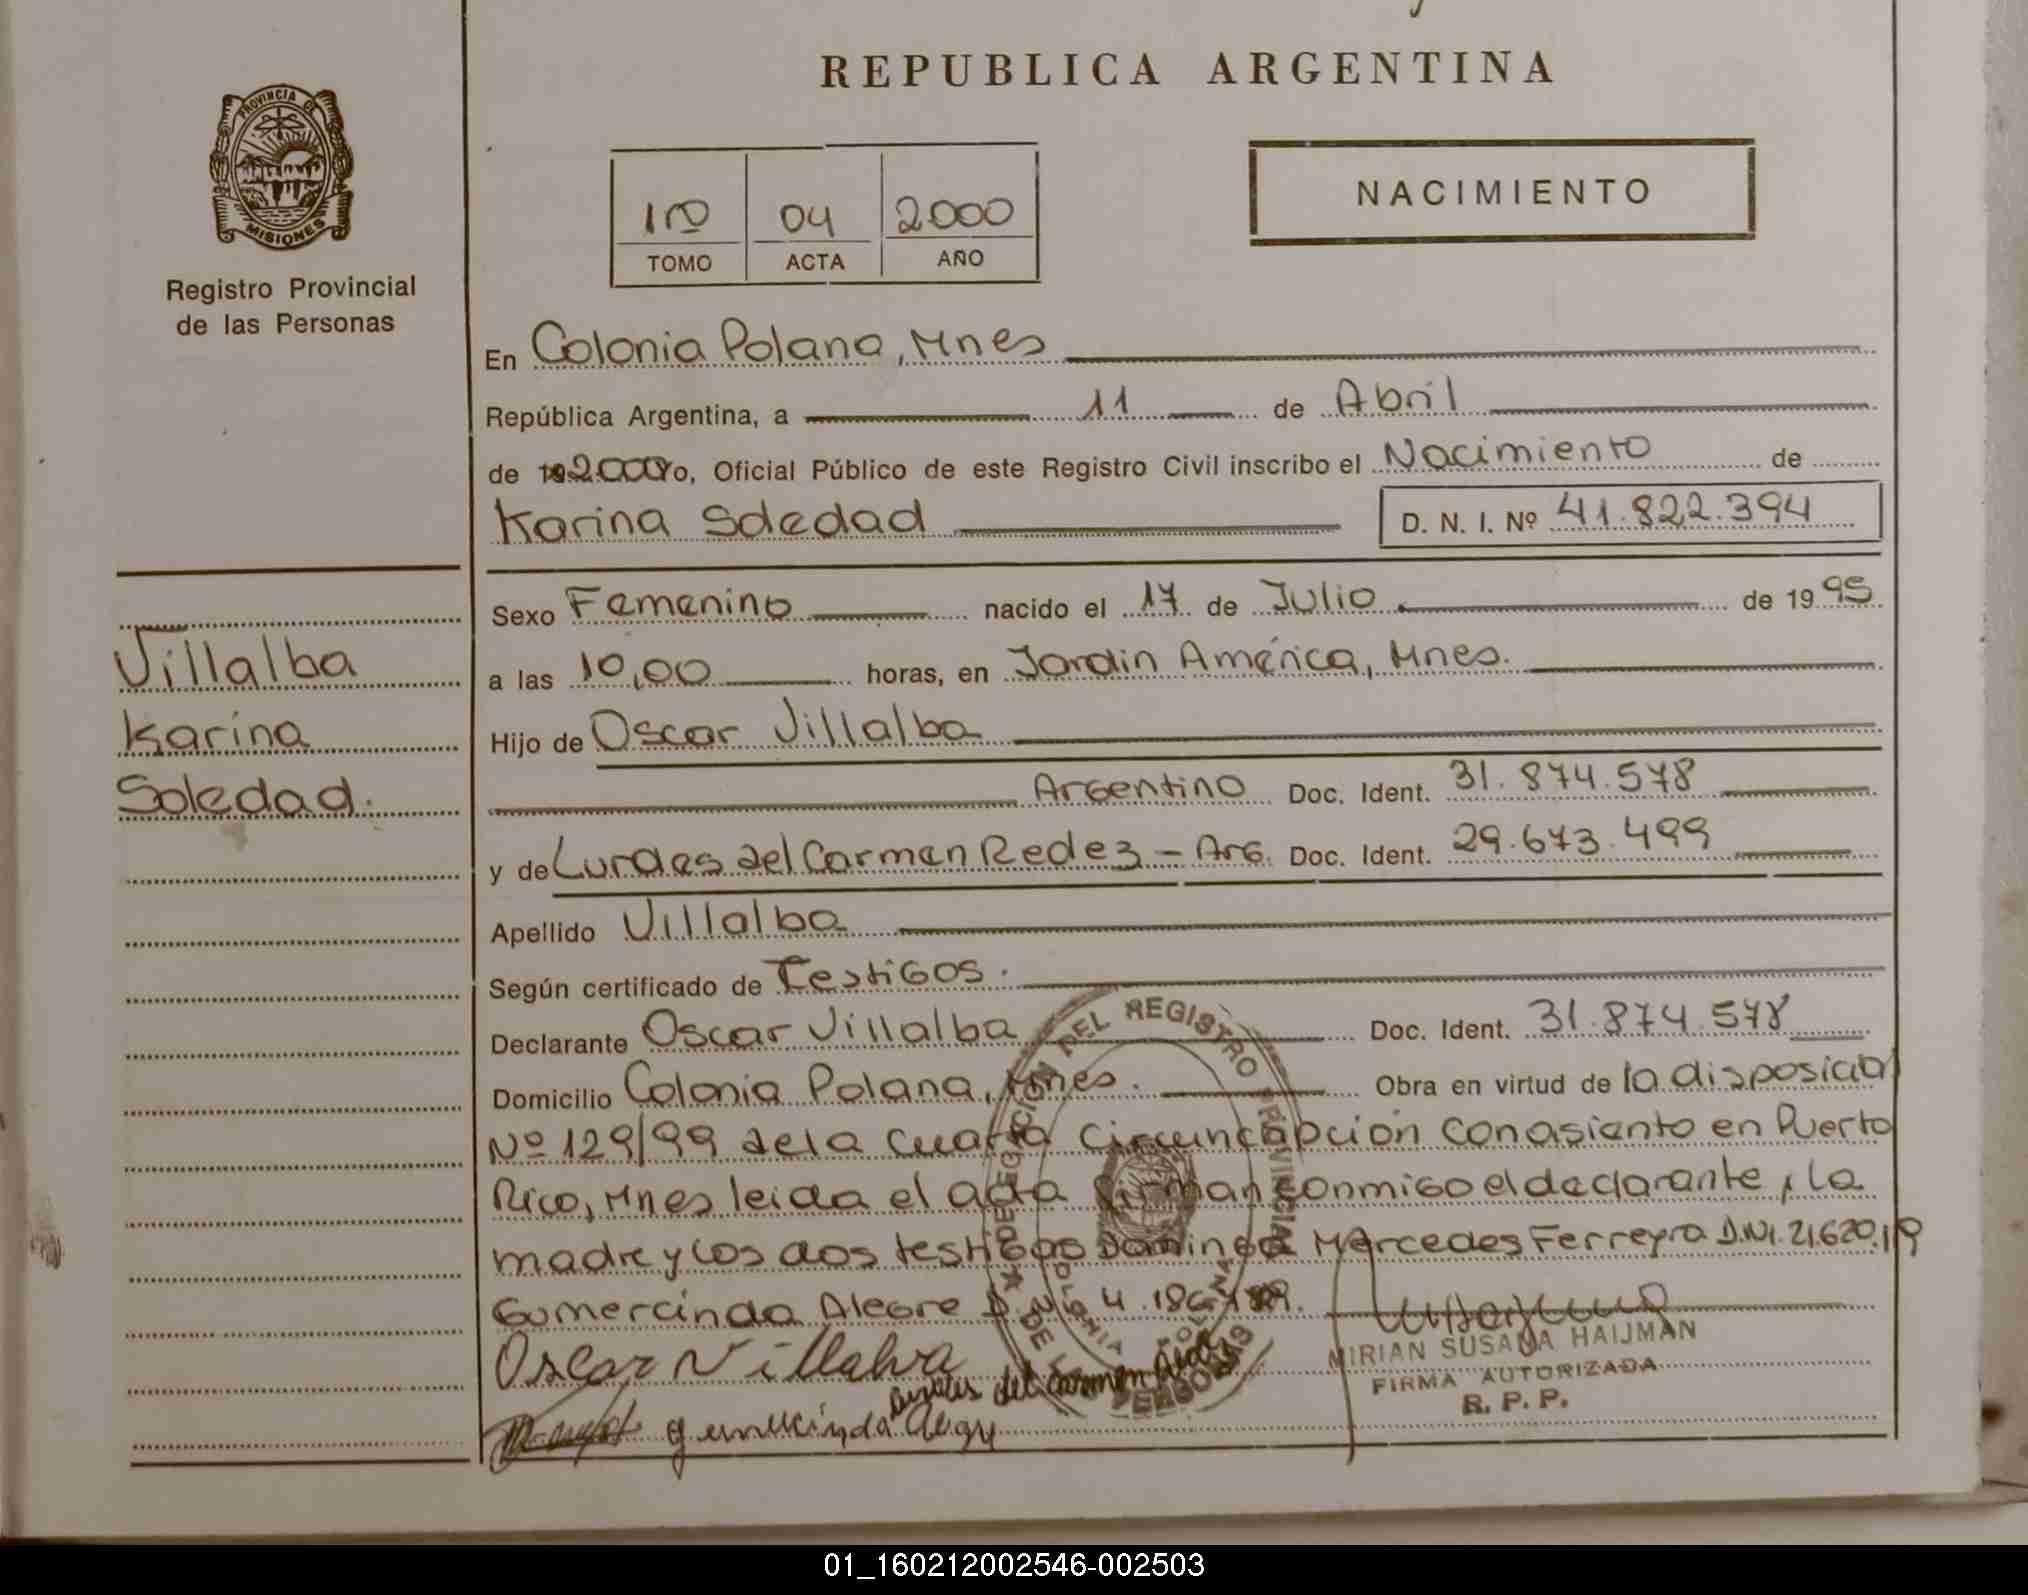 REPUBLICA ARGENTINA
PROVINCIA DE
MISIONES
Registro Provincial
de las Personas
1ro 04 2000
TOMO ACTA AÑO
NACIMIENTO
En Colonia Polana, Mnes
República Argentina, a 11 de Abril
de 2000 yo, Oficial Público de este Registro Civil inscribo el Nacimiento de
Karina Soledad D. N. I. Nº 41.822.394
Villalba
Karina
Soledad.
Sexo Femenino nacido el 17 de Julio de 1995
a las 10,00 horas, en Jardin América, Mnes.
Hijo de Oscar Villalba
Argentino Doc. Ident. 31.874.578
y de Lurdes del Carmen Redez - Arg. Doc. Ident. 29.673.499
Apellido Villalba
Según certificado de Testigos.
Declarante Oscar Villalba Doc. Ident. 31.874.578
Domicilio Colonia Polana, Mnes. Obra en virtud de la disposición
Nº 129/99 de la cuarta circuncapción con asiento en Puerto
Rico, Mnes leida el acta firman conmigo el declarante, la
madre y los dos testigos Dominga Mercedes Ferreyra D.N.I. 21.620.119
Gumercinda Alegre D.N.I. 4.186.
Oscar Villalva
del Carmen
Alegre
DELEGACIÓN DEL REGISTRO PROVINCIAL DE LAS PERSONAS
COLONIA POLANA
MIRIAN SUSANA HAIJMAN
FIRMA AUTORIZADA
R. P. P.
01_160212002546-002503